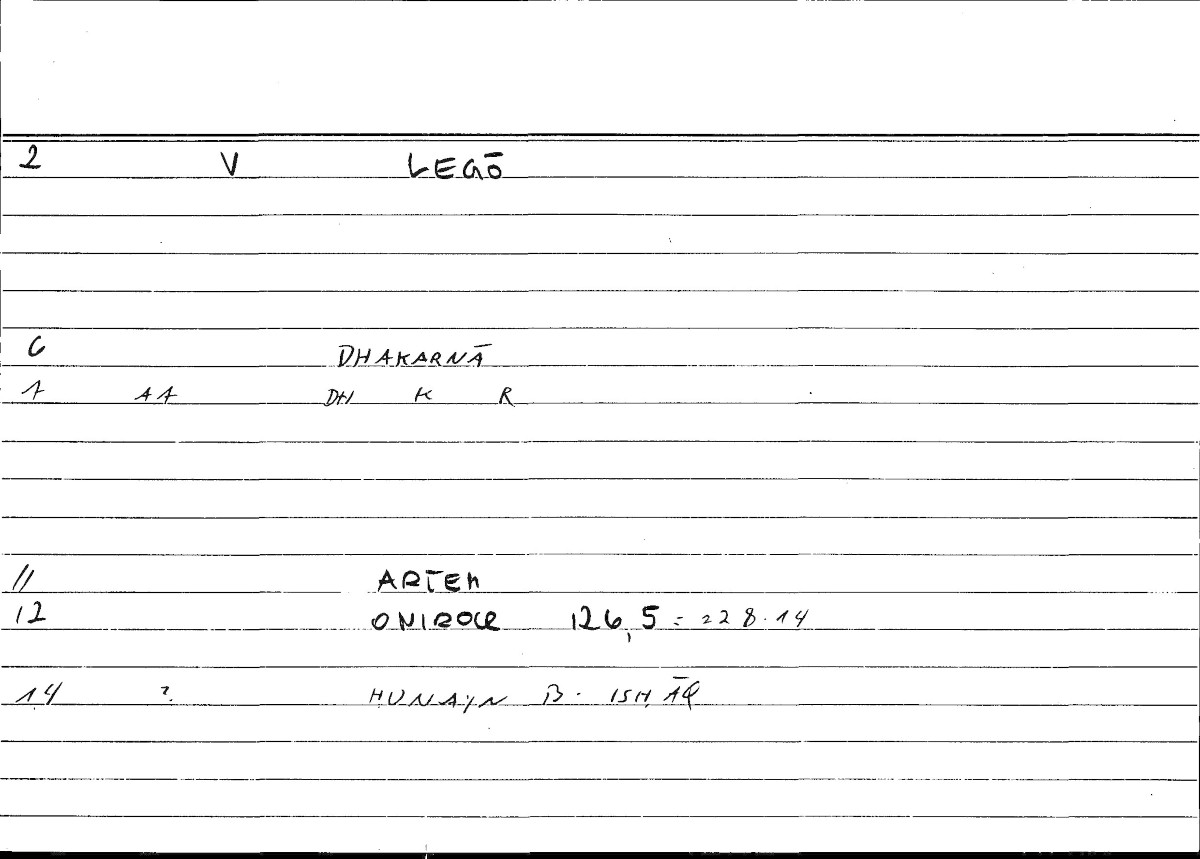 2 V LEGŌ
6 DHAKARNĀ
1 AA DH K R
11 ARTEM
12 ONIROCR 126,5 = 228.14
14 ? ḤUNAYN B. ISḤĀQ